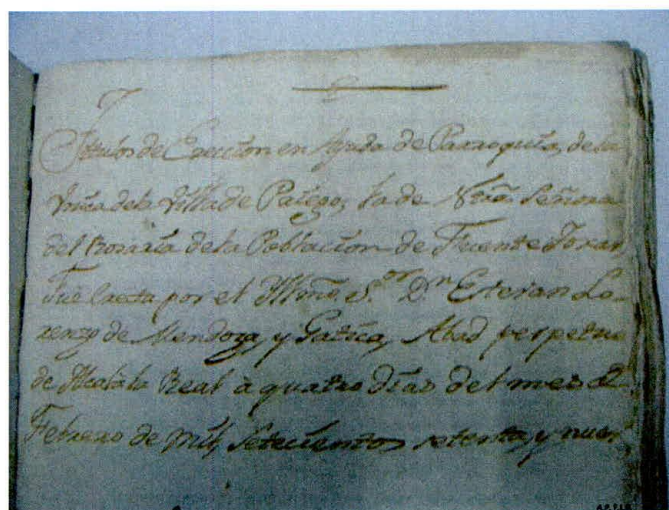 Titulos de Ereccion en Ayuda de Parroquia, de la
Unica de la Villa de Priego, la de Ntrã Señora
del Rosario de la Poblacion de Fuente Tojar
Fue Erecta por el Illmo. S.or D.n Estevan Lo-
renzo de Mendoza, y Gatica, Abad perpetuo
de Alcala la Real à quatro dias del mes de
Febrero de mil, Setecientos setenta, y nuev